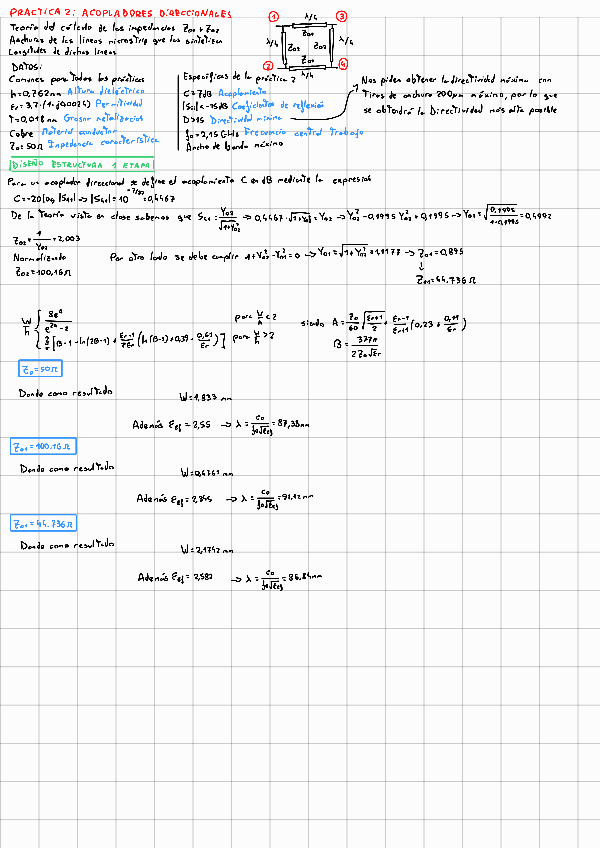 PRACTICA 2: ACOPLADORES DIRECCIONALES
Teoría del cálculo de las impedancias Z01 y Z02
Anchuras de las líneas microstrip que las sintetizan
Longitudes de dichas líneas
1 λ/4 3
Z01
λ/4 Z02 Z02 λ/4
Z01
2 λ/4 4
DATOS:
Comunes para todas las prácticas
h=0,762mm Altura dieléctrico
Er=3,7·(1-j0,0024) Permitividad
T=0,018mm Grosor metalización
Cobre Material conductor
Z0=50Ω Impedancia característica
Específicas de la práctica 2
C=7dB Acoplamiento
|Sii|<-15dB Coeficientes de reflexión
D>15 Directividad mínima
f0=2,15GHz Frecuencia central trabajo
Ancho de banda máximo
Nos piden obtener la directividad máxima con
Tiras de anchura 200μm máximo, por lo que
se obtendrá la Directividad más alta posible
DISEÑO ESTRUCTURA 1 ETAPA
Para un acoplador direccional se define el acoplamiento C en dB mediante la expresión
C=-20log|S41| => |S41|=10^-7/20=0,4467
De la Teoría vista en clase sabemos que S41=Y02/√(1+Y02²) → 0,4467·√(1+Y02²)=Y02 → Y02²-0,1995Y02²=0,1995 → Y02=√(0,1995/(1-0,1995))=0,4992
Z02=1/Y02=2,003
Normalizado
Z02=100,16Ω
Por otro lado se debe cumplir 1+Y02²-Y01²=0 → Y01=√(1+Y02²)=1,1177 → Z01=0,895
↓
Z01=44.736Ω
W/h { 8e^A/(e^2A-2) para W/h<2
2/π[B-1-ln(2B-1)+(Er-1)/2Er(ln(B-1)+0,39-0,61/Er)] para W/h>2
siendo A=Z0/60√((Er+1)/2)+(Er-1)/(Er+1)(0,23+0,11/Er)
B=377π/(2Z0√Er)
Z0=50Ω
Dando como resultado W=1,833 mm
Además Eef=2,55 → λ=c0/(f0√Eef)=87,38mm
Z01=100.16Ω
Dando como resultado
Además → λ=c0/(f0√Eef)=
Z01=44.736Ω
Dando como resultado W=2,1742 mm
Además Eef=2,582 → λ=c0/(f0√Eef)=86,84mm